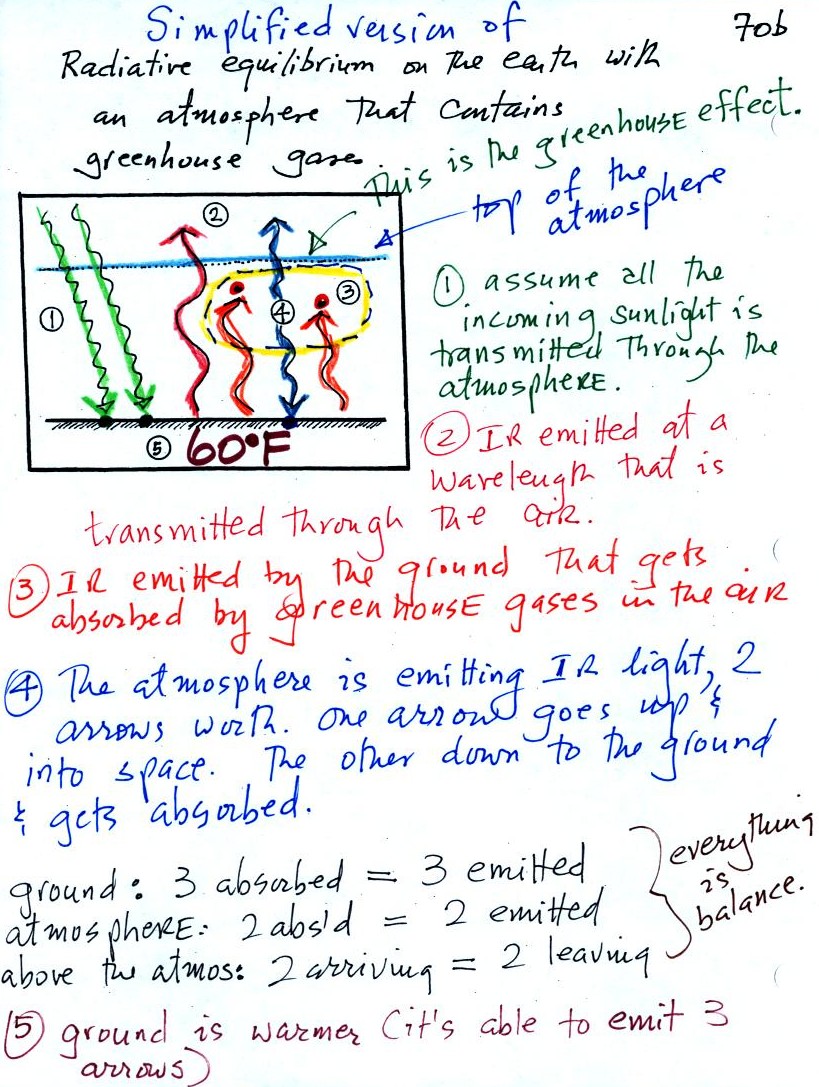 Simplified version of
70b
Radiative equilibrium on the earth with
an atmosphere that contains
greenhouse gases
This is the greenhouse effect.
top of the
atmosphere
①
②
③
④
⑤ 60°F
① assume all the
incoming sunlight is
transmitted through the
atmosphere.
② IR emitted at a
wavelength that is
transmitted through the air.
③ IR emitted by the ground that gets
absorbed by greenhouse gases in the air
④ The atmosphere is emitting IR light, 2
arrows worth. One arrow goes up &
into space. The other down to the ground
& gets absorbed.
ground: 3 absorbed = 3 emitted
atmosphere: 2 abs'd = 2 emitted
above the atmos: 2 arriving = 2 leaving
everything
is
balance.
⑤ ground is warmer (it's able to emit 3
arrows)